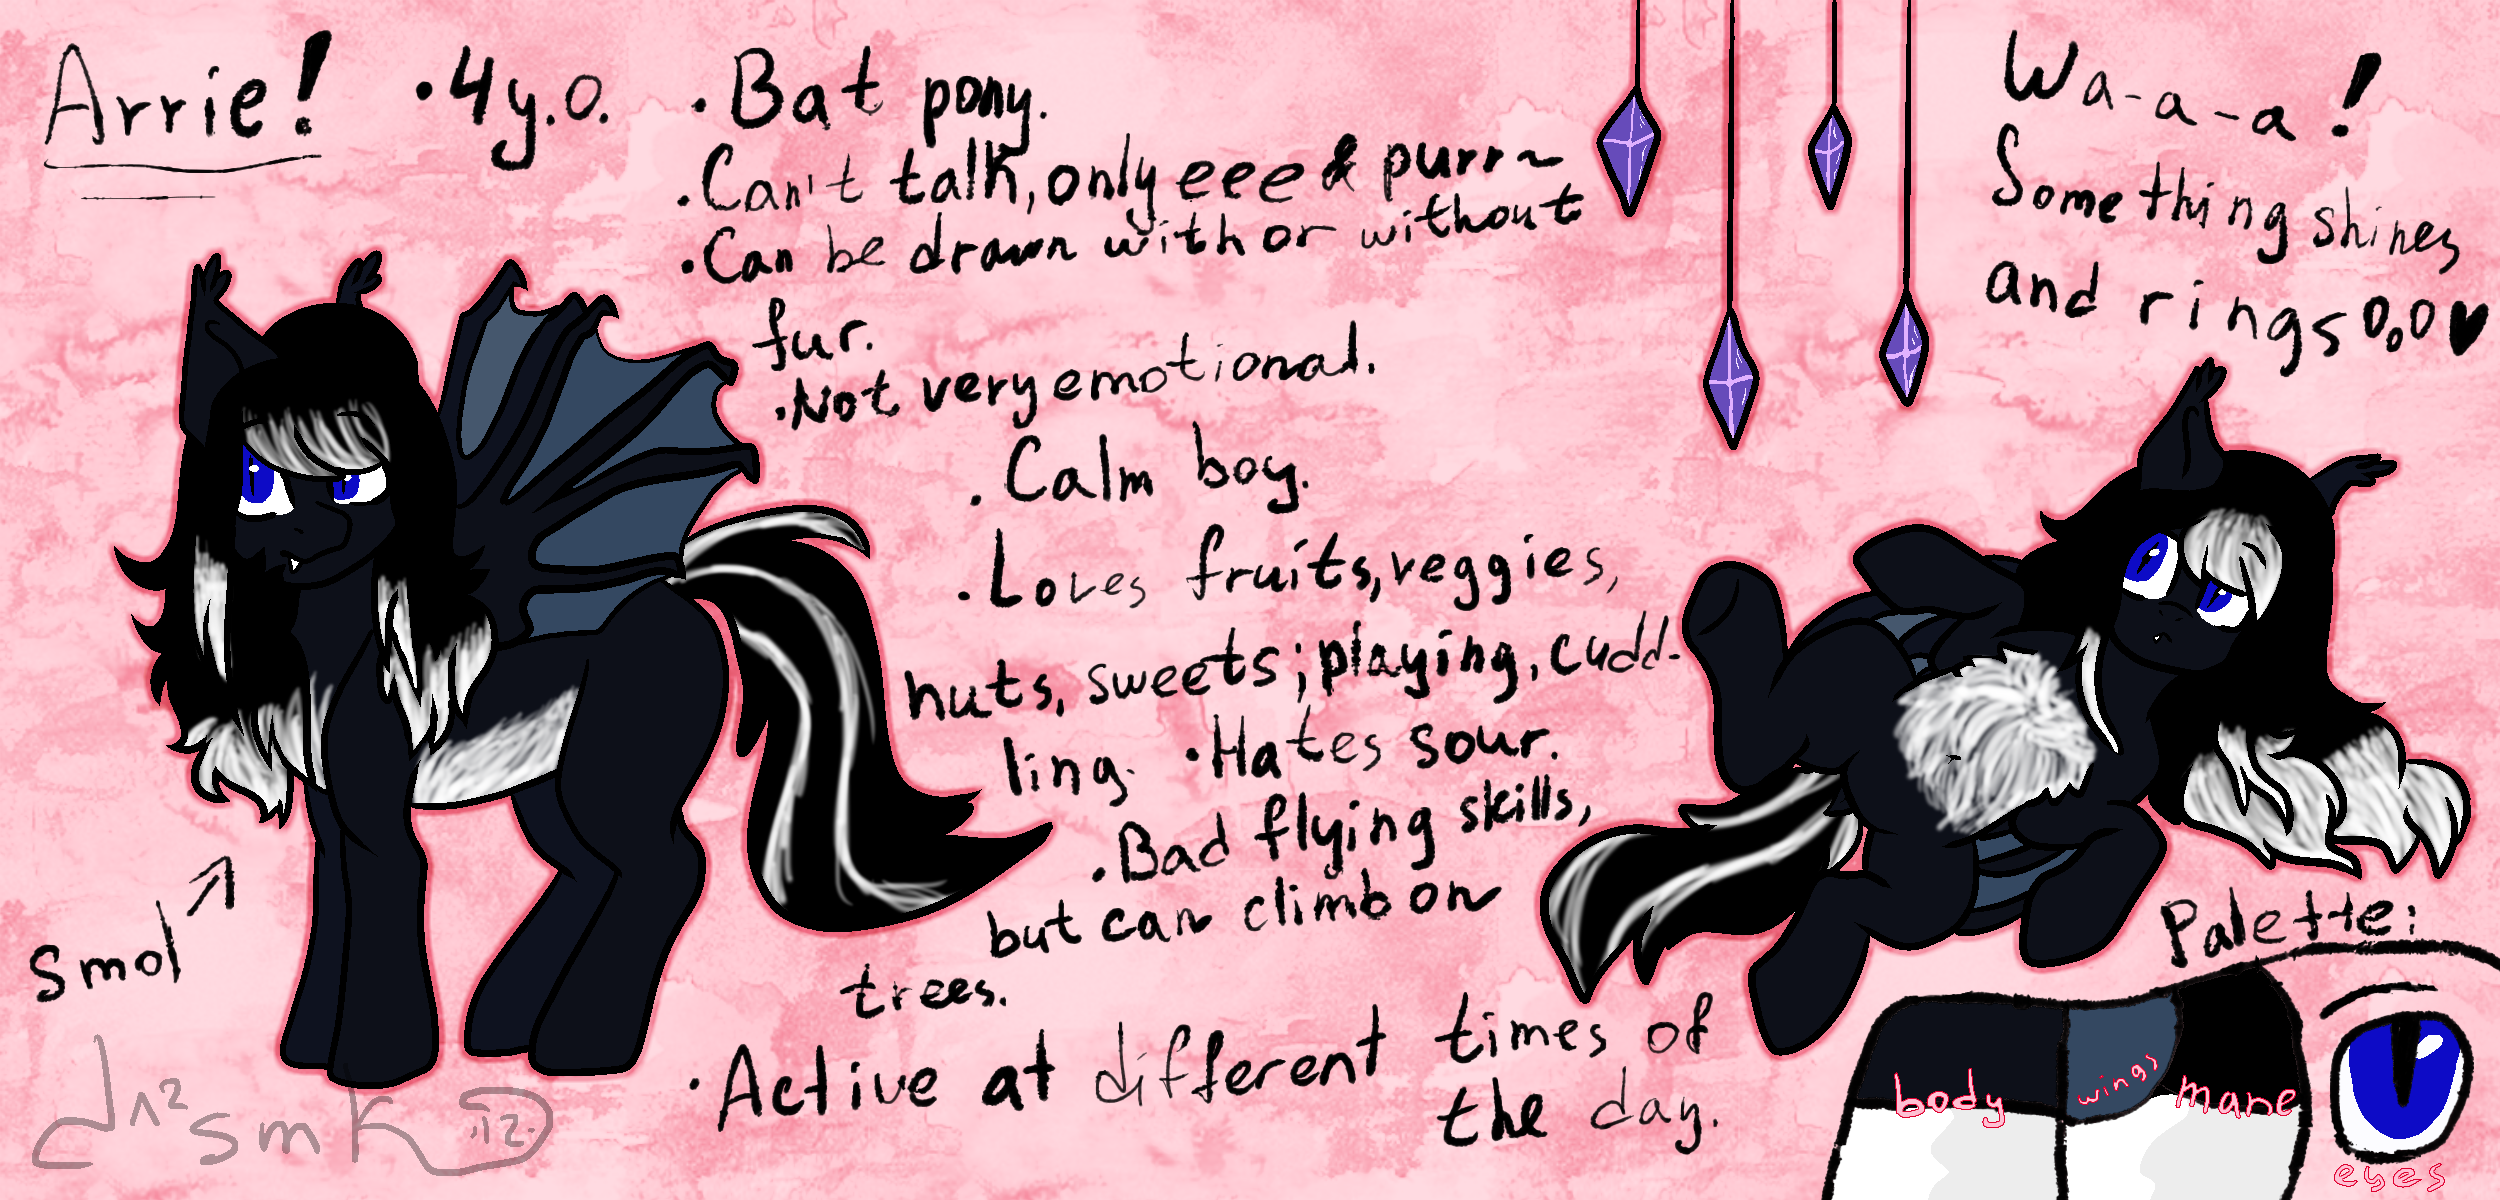 Arrie!
• 4 y.o.
• Bat pony.
• Can't talk, only eee & purr~
• Can be drawn with or without
fur.
• Not very emotional.
• Calm boy.
• Loves fruits, veggies,
nuts, sweets; playing, cudd-
ling. • Hates sour.
• Bad flying skills,
but can climb on
trees.
• Active at different times of
the day.
Wa-a-a!
Something shines
and rings 0,0 ♥
smol
Palette:
body
wings
mane
eyes